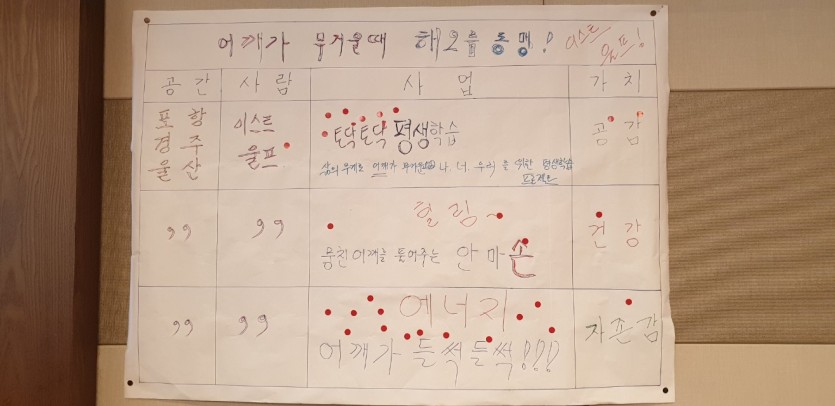 어깨가 무거울때 해오름동맹! 이스트 울프!
공간 사람 사업 가치
포항 경주 울산
이스트 울프
토닥토닥 평생학습
삶의 무게로 어깨가 무거운 나, 너, 우리 을 위한 평생학습 프로젝트
공감
" "
힐링~
뭉친어깨를 풀어주는 안마손
건강
" "
에너지
어깨가 들썩들썩!!!
자존감